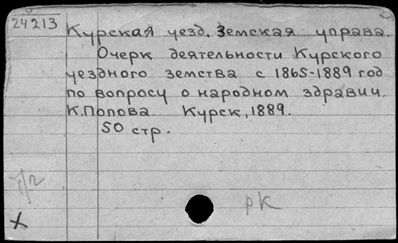 24213
Курская уезд. Земская управа.
Очерк деятельности Курского
уездного земства с 1865-1889 год
по вопросу о народном здравии.
К. Попова. Курск, 1889.
50 стр.
рк
х